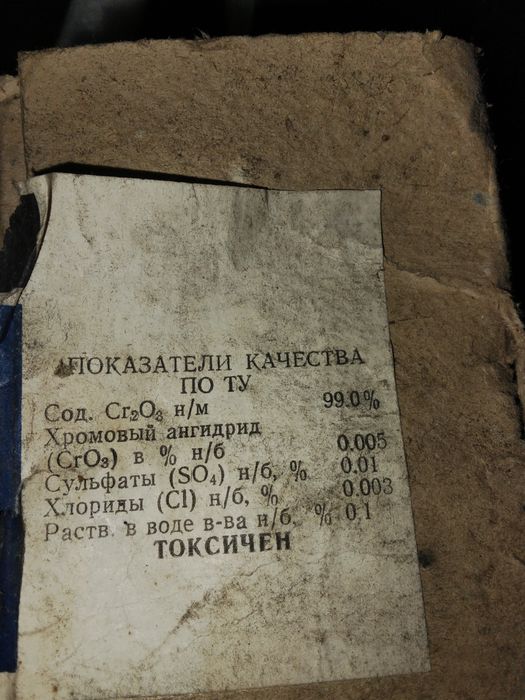 ПОКАЗАТЕЛИ КАЧЕСТВА
ПО ТУ
Сод. Cr₂O₃ н/м 99.0%
Хромовый ангидрид
(CrO₃) в % н/б 0.005
Сульфаты (SO₄) н/б, % 0.01
Хлориды (Cl) н/б, % 0.003
Раств. в воде в-ва н/б, % 0.1
ТОКСИЧЕН